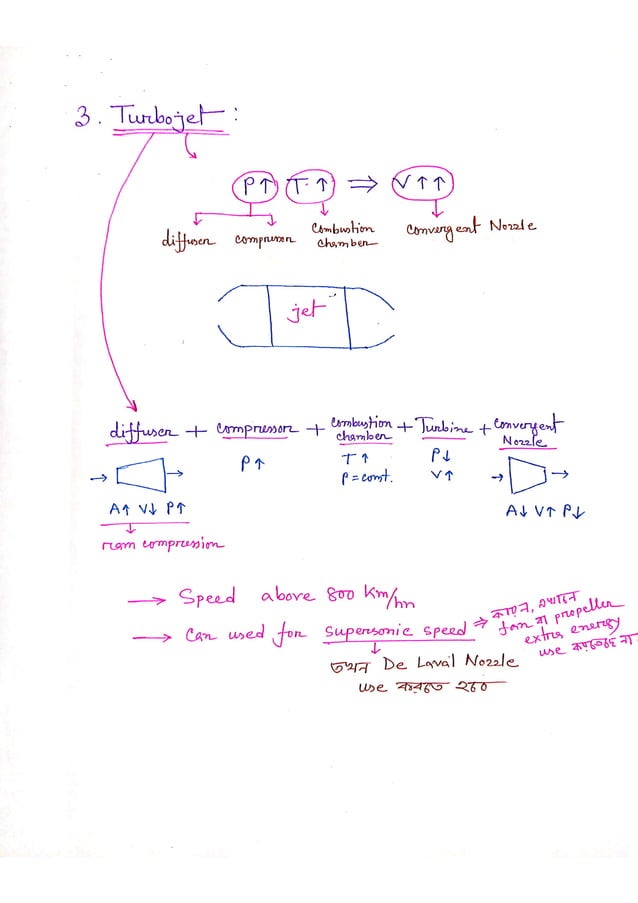 3. Turbojet :
P↑ T↑ ⇒ V↑↑
diffuser compressor Combustion chamber Convergent Nozzle
jet
diffuser + Compressor + Combustion chamber + Turbine + Convergent Nozzle
P↑ T↑ P↓
P = const. V↑
A↑ V↓ P↑ A↓ V↑ P↓
ram compression
→ Speed above 800 Km/hr
→ Can used for supersonic speed ⇒ কারন, এখানে
fan বা propeller
extra energy
use করতেছে না
তখন De Laval Nozzle
use করতে হবে